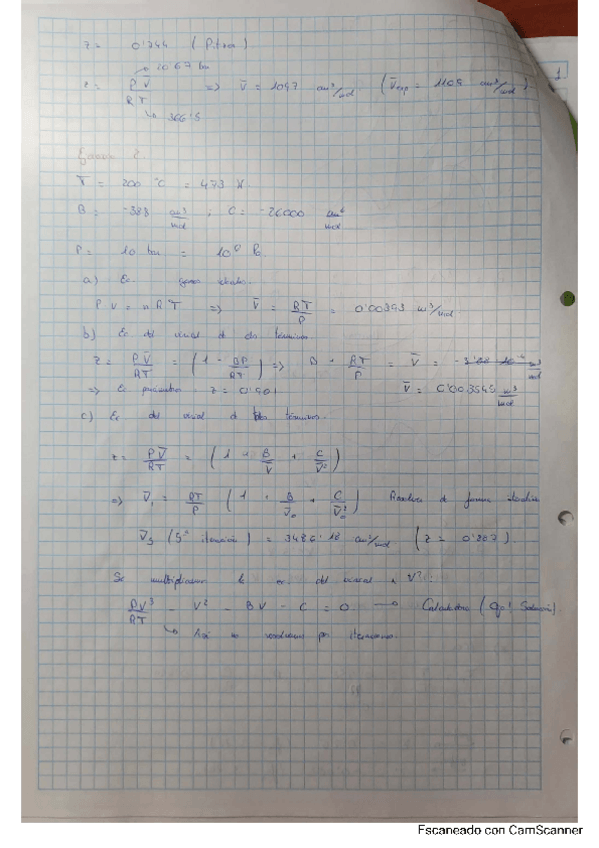 z = 0'744 (Pitzer)
20'67 bar
z = P V̄ / R T => V̄ = 1097 cm³/mol (V̄exp = 1109 cm³/mol)
366'5
1
2.
T = 200 °C = 473 K
B = -388 cm³/mol ; C = -26000 cm⁶/mol
P = 10 bar = 10⁶ Pa.
a) Ec. gases ideales.
P V = n R T => V̄ = RT/P = 0'00393 m³/mol.
b) Ec del virial de dos términos
z = PV̄/RT = (1 - BP/RT) => B + RT/P = V̄ =
=> z = 0'901 V̄ = 0'003545 m³/mol
c) Ec del virial de términos.
z = PV̄/RT = (1 + B/V̄ + C/V̄²)
=> V̄₁ = RT/P (1 + B/V̄₀ + C/V̄₀²) de forma iterativa
V̄₅ (5ª iteración) = 3486'18 cm³/mol (z = 0'887).
Si multiplicamos la ec. del virial × V²:
PV³/RT - V² - BV - C = 0 → Calculadora ( Solución).
Así no resolvemos por iteraciones.
Escaneado con CamScanner